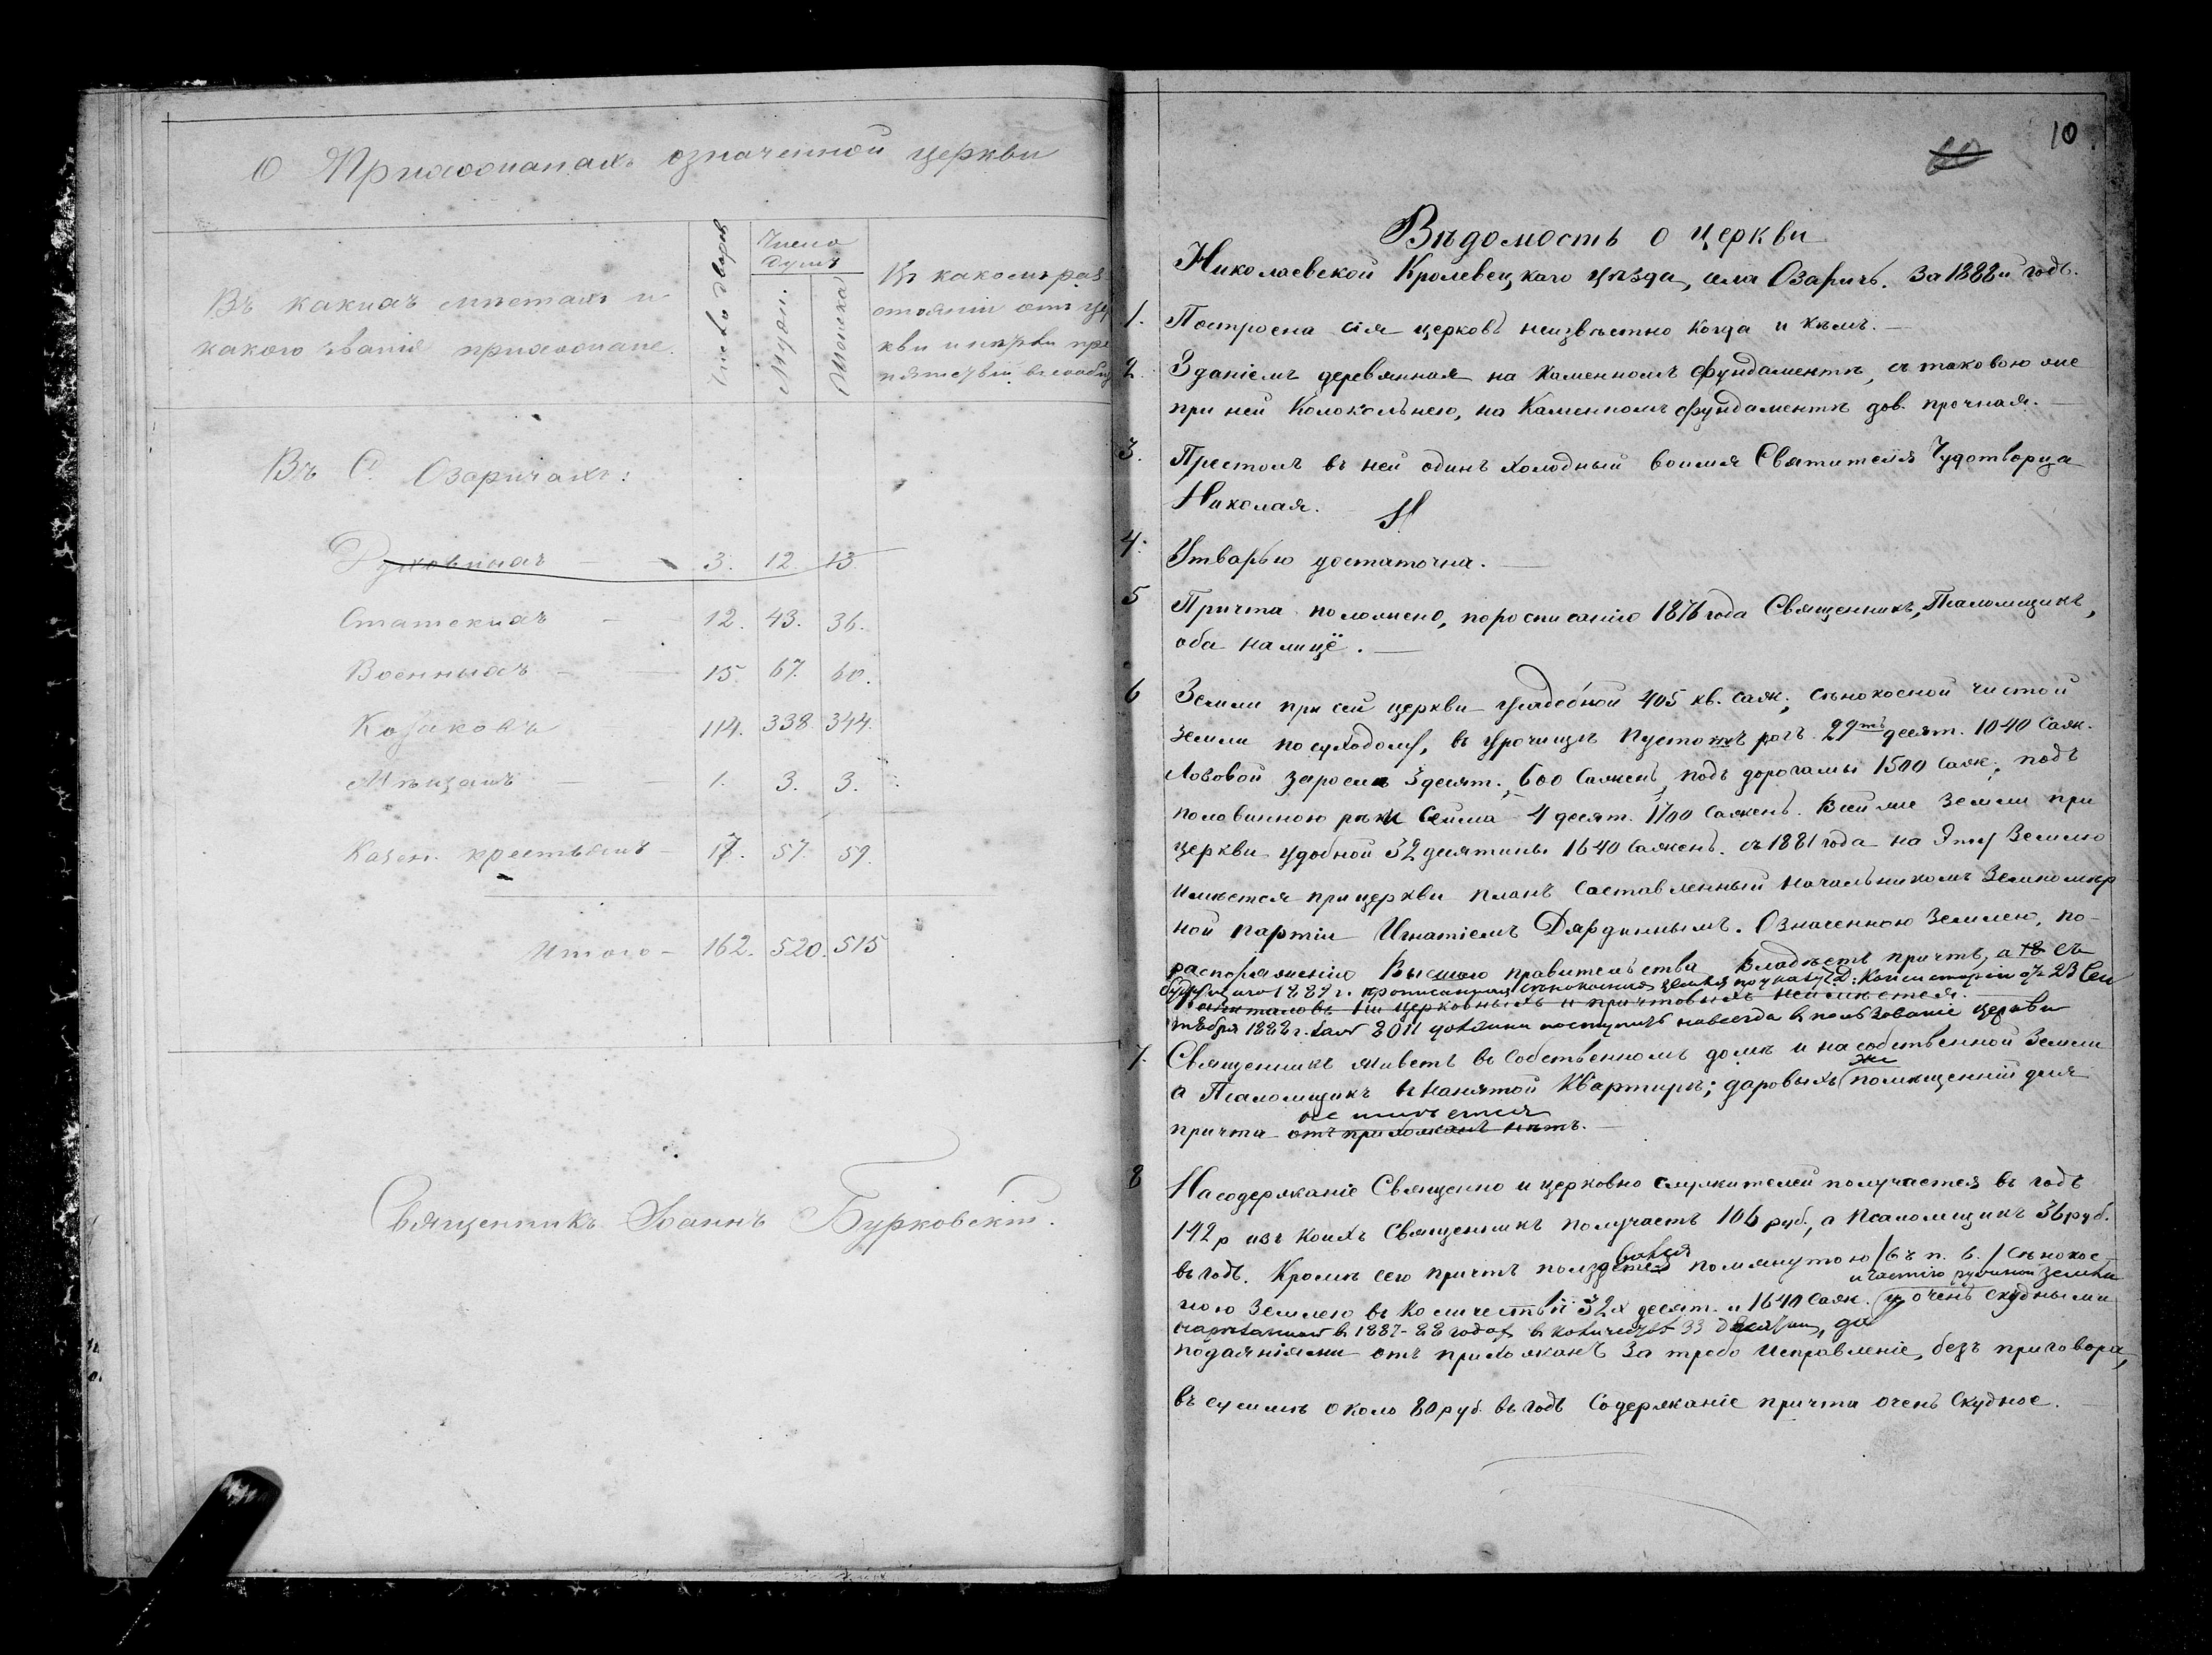 О Прихожанахъ означенной церкви
Въ какихъ мѣстахъ и
какого званія прихожане.
Число дворов
Число
душъ
Мужск.
Женска
Въ какомъ раз
стояніи отъ це
кви и нѣтъ ли пре
пятствій въ сообщ
Въ С. Озаричахъ:
Духовныхъ - 3. 12. 13.
Статскихъ - 12. 43. 36.
Военныхъ - 15. 67. 60.
Козаковъ 114. 338. 344.
Мѣщанъ - 1. 3. 3.
Казен. крестьянъ - 17. 57. 59.
Итого - 162. 520. 515
Священникъ Іоаннъ Бурковскій.
60 10
Вѣдомость о церкви
Николаевской Кролевецкаго уѣзда, села Озаричъ. За 1888й годъ.
1. Построена сія церковь неизвѣстно когда и кѣмъ. —
2. Зданіемъ деревянная на каменномъ фундаментѣ, съ таковою же
при ней Колокольнею, на Каменномъ фундаментѣ дов. прочная. —
3. Престолъ въ ней одинъ холодный воимя Святителя Чудотворца
Николая.
4. Утварью достаточна. —
5 Причта положено, поросписанію 1876 года Священникъ, Псаломщикъ,
оба налицѣ. —
6 Земли при сей церкви усадебной 405 кв. саж.; сѣнокосной чистой
земли по суходолу, въ урочищѣ Пустомъ рогъ 29ть десят. 1040 Саж.
Лозовой заросли 3 десят., 600 Сажень, подъ дорогамы 1500 Саж.; подъ
половинною рѣки Сейма 4 десят. 1700 Сажень. Всей же Земли при
церкви удобной 32 десятины 1640 Сажень. съ 1881 года на Эту Землю
имѣется прицеркви планъ Составленный Начальникомъ Землемѣр
ной партіи Игнатіемъ Дардиннымъ. Означенною Землею, по-
распоряженію Высшаго правительства владѣетъ причтъ, а съ
1889 г. прописанная сѣнокосная земля по указу Д. Консисторіи отъ 23 Сен
Капиталовъ ни церковныхъ и причтовыхъ неимѣется.
тября 1888 г. за № 8011 должна поступить навсегда в пользованіе церкви
7. Священникъ живетъ въ Собственномъ домѣ и на собственной Земли
же
а Псаломщикъ въ нанятой Квартирѣ; даровыхъ помѣщеній для
не имѣется
причта отъ прихожанъ нѣтъ. —
8 На содержаніе Священно и церковно служителей получается въ годъ
142 р изъ коихъ Священникъ получаетъ 106 руб., а Псаломщикъ 36 руб.
въ годъ. Кромѣ сего причтъ пользуется помянутою /въ п. 6./ Сѣнокос-
и частію ружной земли
ною Землею въ количествѣ 32х десят. и 1640 Саж. и очень скудными
в 1887-88 годах в количеств 33 десятин, да
подаяніями отъ прихожанъ за требо исправленіе, безъ приговора,
въ суммѣ около 80 руб. въ годъ Содержаніе причта очень Скудное.